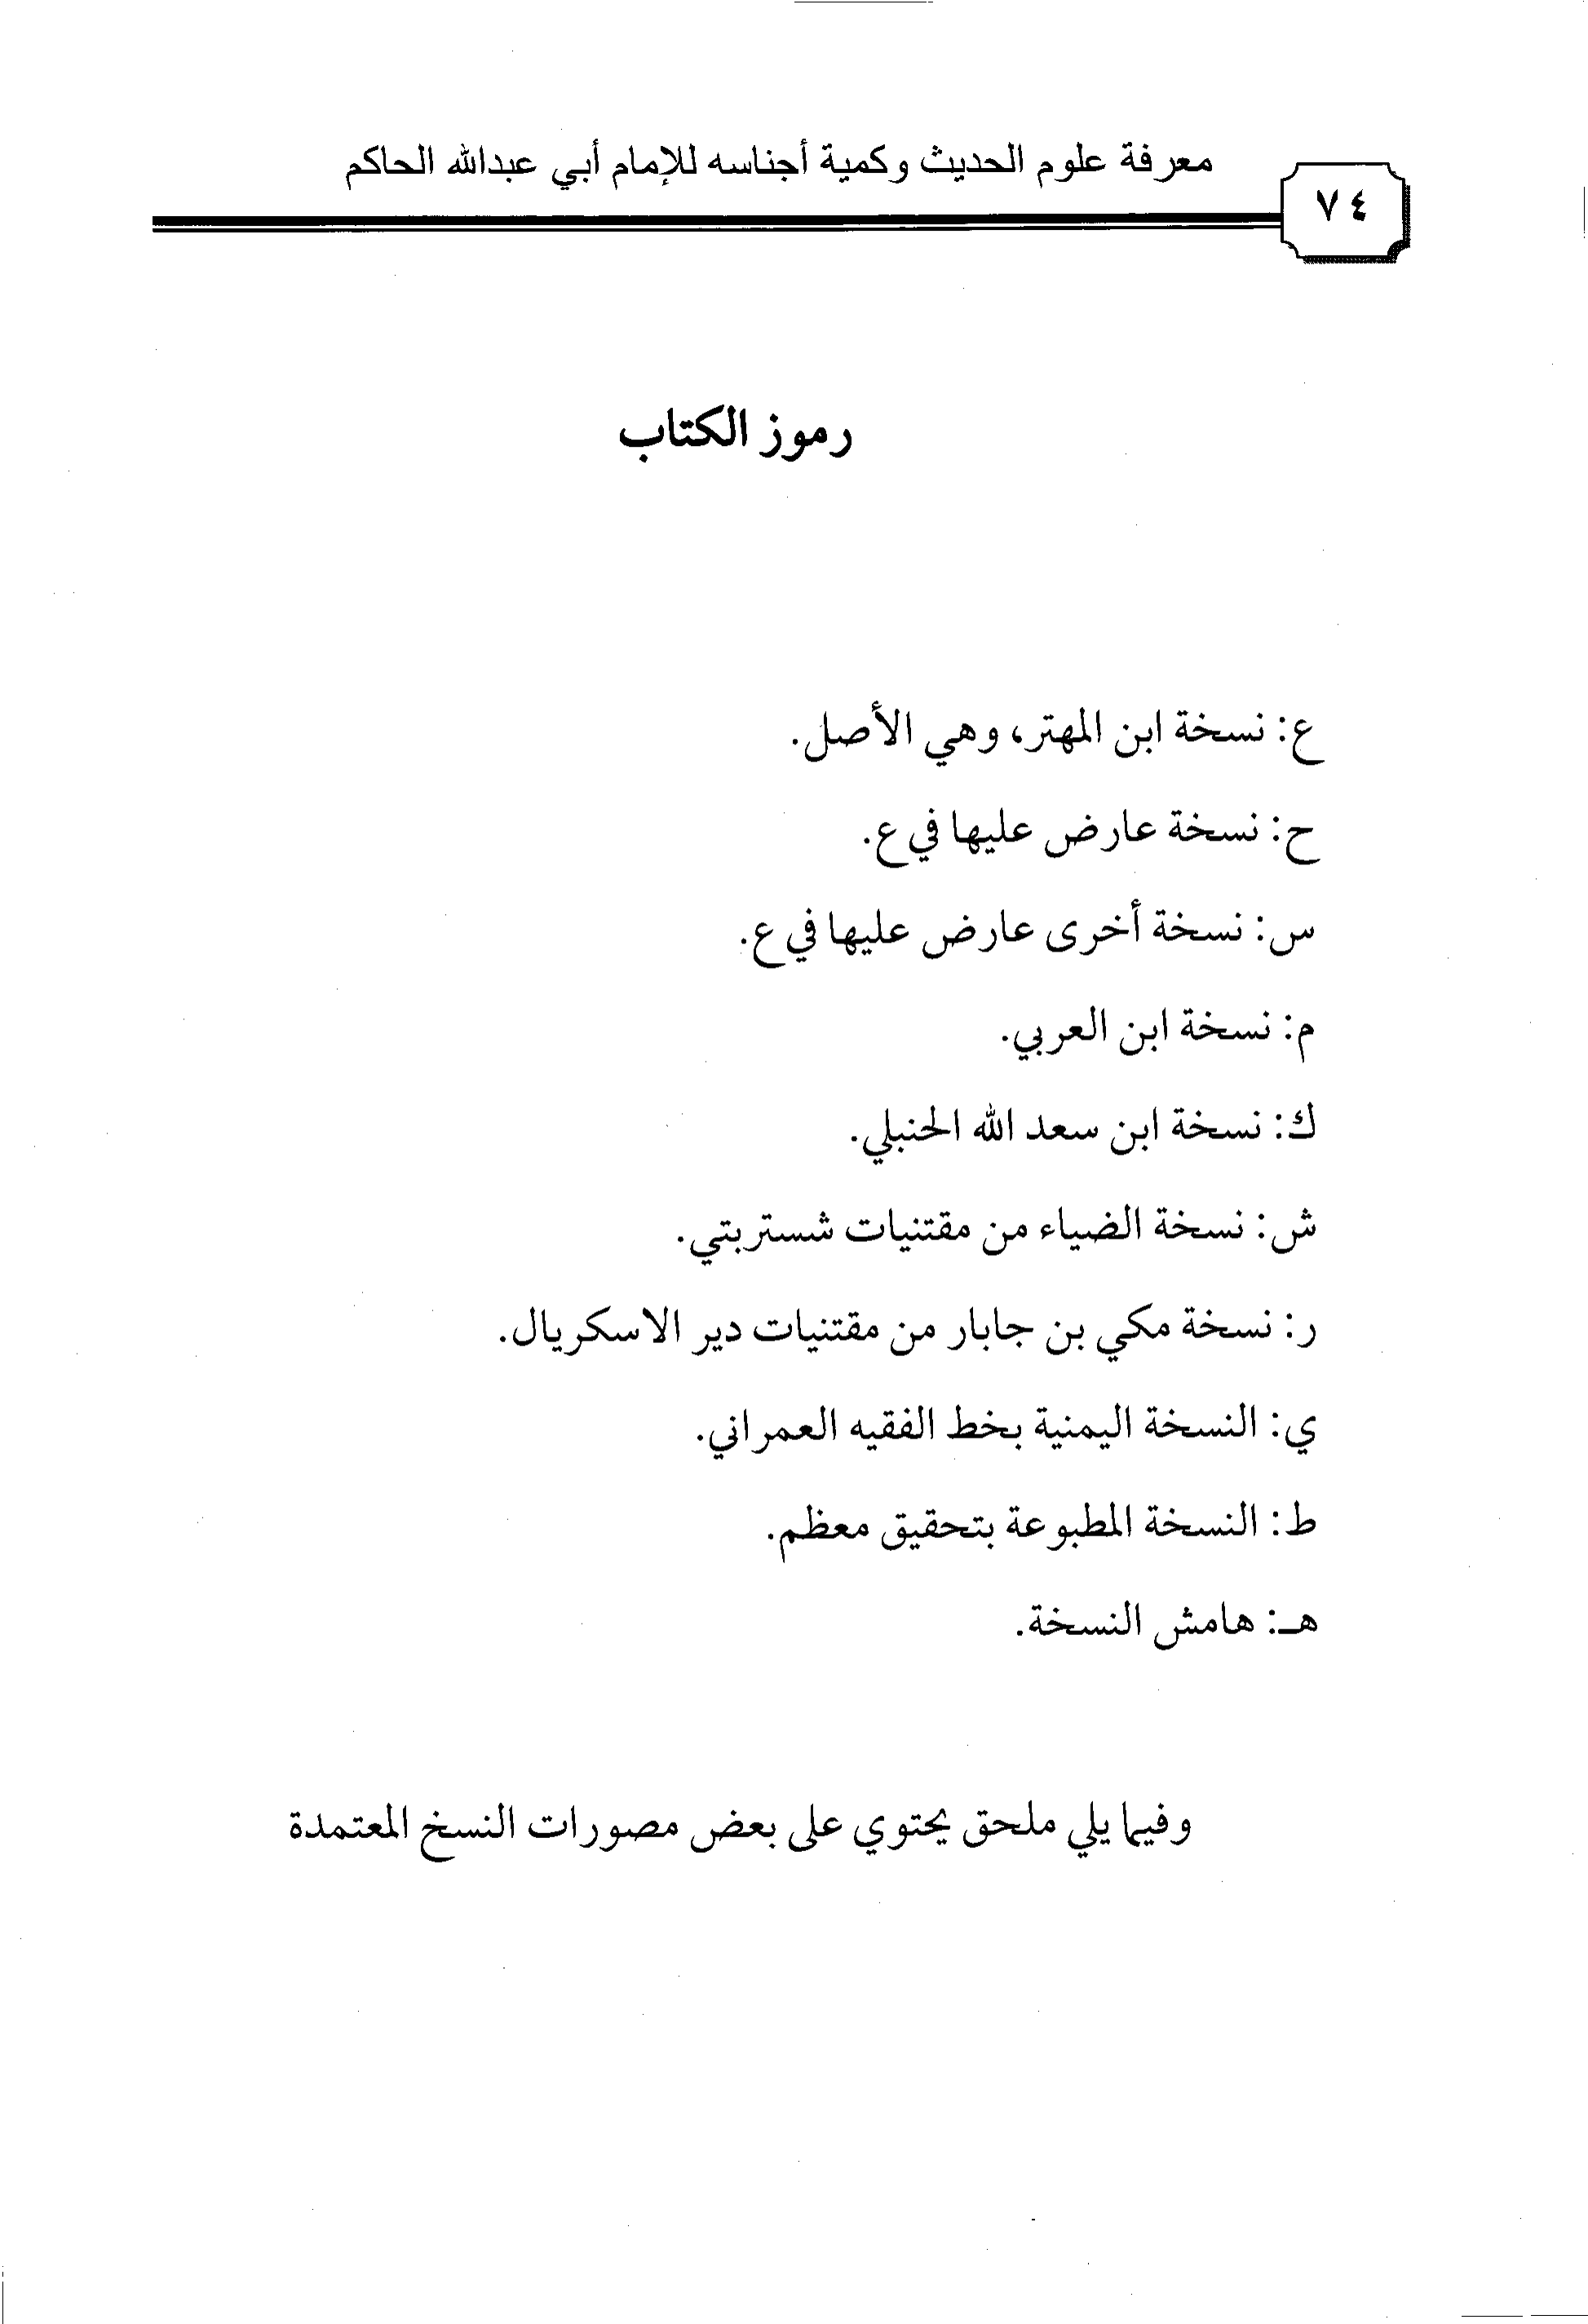 معرفة علوم الحديث وكمية أجناسه للإمام أبي عبدالله الحاكم
٧٤
رموز الكتاب
ع: نسخة ابن المهتر، وهي الأصل.
ح: نسخة عارض عليها في ع.
س: نسخة أخرى عارض عليها في ع.
م: نسخة ابن العربي.
ك: نسخة ابن سعد الله الحنبلي.
ش: نسخة الضياء من مقتنيات شستربتي.
ر: نسخة مكي بن جابار من مقتنيات دير الاسكريال.
ي: النسخة اليمنية بخط الفقيه العمراني.
ط: النسخة المطبوعة بتحقيق معظم.
هـ: هامش النسخة.
وفيما يلي ملحق يحتوي على بعض مصورات النسخ المعتمدة